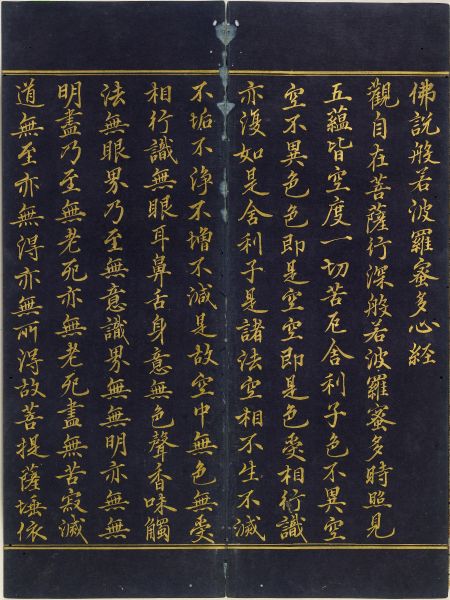 佛說般若波羅蜜多心経
觀自在菩薩行深般若波羅蜜多時照見
五蘊皆空度一切苦厄舍利子色不異空
空不異色色即是空空即是色受相行識
亦復如是舍利子是諸法空相不生不滅
不垢不淨不增不減是故空中無色無受
相行識無眼耳鼻舌身意無色聲香味觸
法無眼界乃至無意識界無無明亦無無
明盡乃至無老死亦無老死盡無苦寂滅
道無至亦無得亦無所得故菩提薩埵依